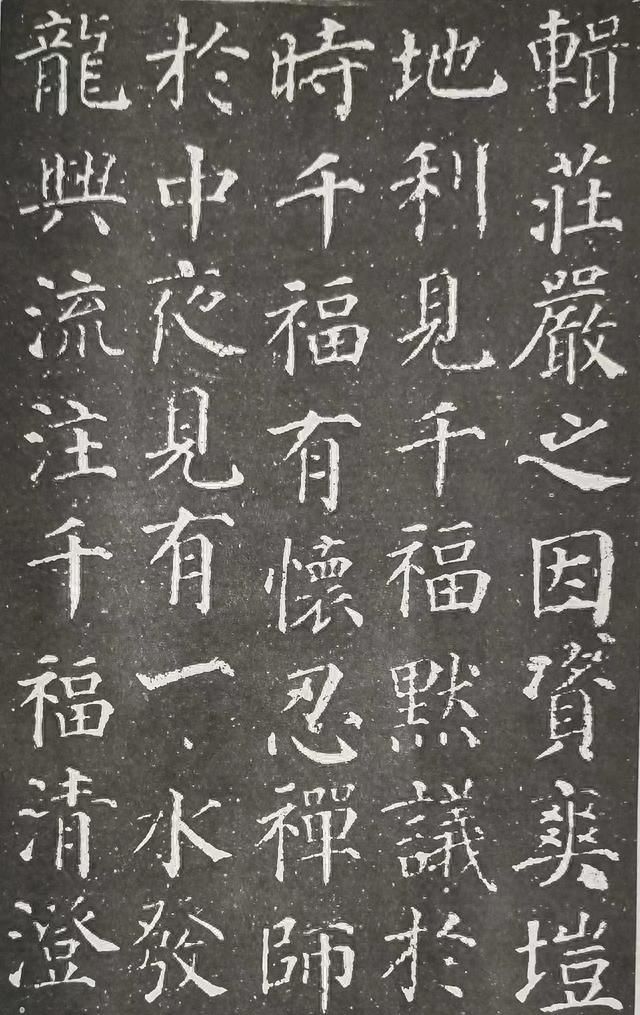 輯莊嚴之因資爽塏
地利見千福默議於
時千福有懷忍禪師
於中夜見有一水發
龍興流注千福清澄